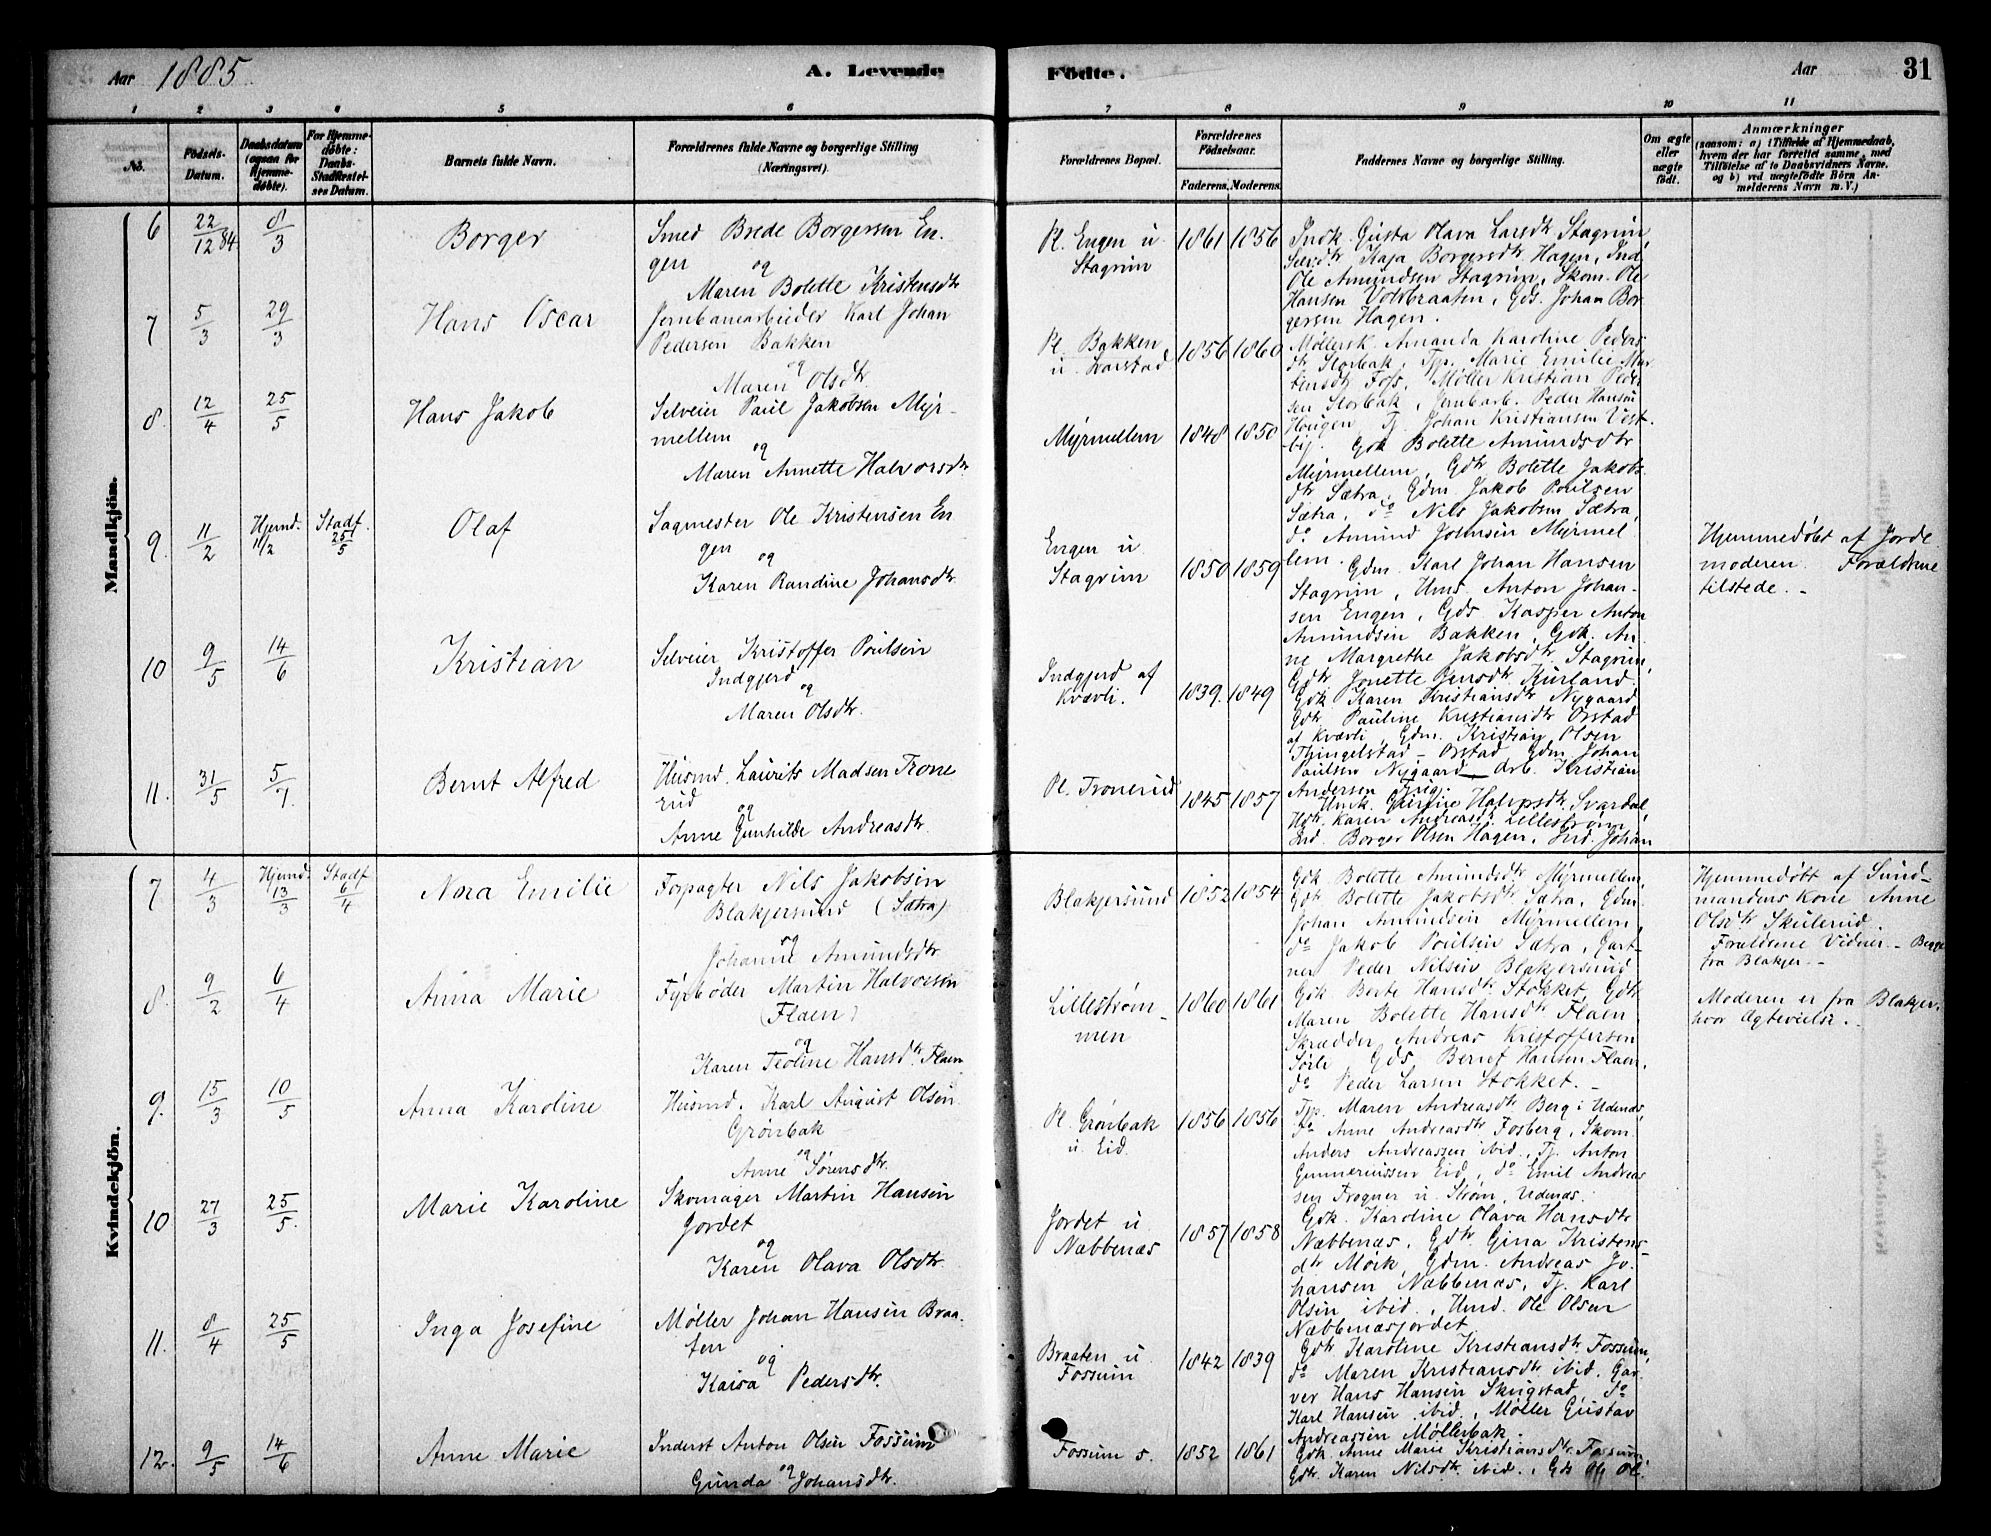 Aar 1885. A. Levende Födte. Aar 31
1 2 3 4 5 6 7 8 9 10 11
No.
Födsels-Datum.
Daabsdatum (ogsaa for Hjemmedöbte).
For Hjemmedöbte: Daabs-Stadfæstelses Datum.
Barnets fulde Navn.
Forældrenes fulde Navne og borgerlige Stilling (Næringsvei).
Forældrenes Bopæl.
Forældrenes Födselsaar.
Faderens. Moderens.
Faddernes Navne og borgerlige Stilling.
Om ægte eller uægte födt.
Anmærkninger
(saasom: a) i Tilfælde af Hjemmedaab, hvem der har forrettet samme, med Tilföielse af to Daabsvidners Navne. og b) ved uægtefödte Börn Anmelderens Navn m. V.)
Mandkjön.
6 22/12 84 8/3 Borger
Smed Brede Borgersen En-
gen og
Maren Bolette Kristensdtr
Pl. Engen u.
Stagrim
1861 1856
Indk. Gusta Olava Larsdtr Stagrim
Kaja Borgersdtr Hagen, Ind.
Ole Amundsen Stagrim, Skom. Ole
Hansen Volsbraaten, Gds. Johan Bor-
gersen Hagen.
7 5/3 29/3 Hans Oscar
Jernbanearbeider Karl Johan
Pedersen Bakken
og
Maren Olsdtr.
Pl. Bakken
u. Lorstad
1856 1860
Møllersk. Amanda Karoline Peders-
dtr Storbak, Tjp. Marie Emilie Mar-
tinsdtr Foss, Møller Kristian Peder
sen Storbak, Jernbarb. Peder Hansen
Haugen, Tj. Johan Kristiansen Vest-
by.
8. 12/4 25/5 Hans Jakob
Selveier Paul Jakobsen Myr-
mellem
og
Maren Annette Halvorsdtr.
Myrmellem
1848 1850
Gdk Bolette Amundsdtr
Myrmellem, Gdtr Bolette Jakobs
dtr Sætra, Gdm Jakob Poulsen
Sætra, do Nils Jakobsen Sætra,
do Amund Johnsen Myrmel
lem.
9. 11/2 Hjemd. 11/2 Stadf. 25/5 Olaf
Sagmester Ole Kristensen En
gen og
Karen Randine Johansdtr.
Engen u.
Stagrim
1850 1859
Gdm. Karl Johan Hansen
Stagrim, Ums. Anton Johan-
sen Engen, Gds Kasper Anton
Amundsen Bakken, Gdk. An
ne Margrethe Jakobsdtr Stagrim,
Gdtr Jonette Jensdtr Kurland.
Hjemmedøbt af Jorde
moderen. Forældrene
tilstede. -
10 9/5 14/6 Kristian
Selveier Kristoffer Poulsen
Indgjerd
og
Maren Olsdtr.
Indgjerd af
Kvævli.
1839. 1849
Gdk Karen Kristiansdtr Nygaard
Gdtr. Pauline Kristiansdtr Orstad
af Kvævli, Gdm. Kristian Olsen
Thingelstad - Orstad Gdm Johan
Paulsen Nygaard - Arb. Kristian
Andersen
11. 31/5 5/7 Bernt Alfred
Husmd. Laurits Madsen Trone
Erud
og
Anne Gunhilde Andreasdtr.
Pl. Tronerud
1845 1857
Umk. Halvorsdtr. Svardal
Udtr. Karen Andreasdtr. Lillestrøm,
Ind. Borger Olsen Hagen, Ind. Johan
Kvindekjön.
7 4/3 Hjemd. 13/3 Stadf 6/4 Nora Emilie
Forpagter Nils Jakobsen
Blakjersund (Sætra)
og
Johanne Amundsdtr
Blakjersund
1852 1854
Gdk Bolette Amundsdtr Myrmellem,
Gdtr Bolette Jakobsdtr Sætra, Gdm.
Johan Amundsen Myrmellem,
do Jakob Poulsen Sætra, Gart-
ner Peder Nilsen Blakjersund
Hjemmedøbt af Sund-
mandens Kone Anne
Olsdtr Skulerud.
Forældrene Vidner. - Begge
fra Blakjer. -
8. 9/2 6/4 Anna Marie
Fyrbøder Martin Halvorsen
(Flaen)
og
Karen Teoline Hansdtr. Flaen
Lillestrøm-
men
1860 1861
Gdk. Berte Hansdtr Stokket, Gdtr
Maren Bolette Hansdtr Flaen
Skrædder Andreas Kristoffersen
Sørli Gds Bernt Hansen Flaen,
do Peder Larsen Stokket. -
Moderen er fra Blakjer,
hvor Ægtevielse. -
9. 15/3 10/5 Anna Karoline
Husmd. Karl August Olsen
Grønbak
og
Anne Sørensdtr.
Pl. Grønbak
u. Eid.
1856 1856
Tjp. Maren Andreasdtr Berg i Udenæs,
do Anne Andreasdtr Fosberg, Skom.
Anders Andreassen ibid., Tj. Anton
Gunnerussen Eid, do Emil Andreas
sen Frogner u. Strøm, Udenæs.
10 27/3 25/5. Marie Karoline
Skomager Martin Hansen
Jordet
og
Karen Olava Olsdtr.
Jordet u.
Næbbenæs
1857 1858
Gdk. Karoline Olava Hansdtr
Næbbenæs, Gdtr Gina Kristens-
dtr Mørk, Gdm. Andreas Jo-
hansen Næbbenæs, Tj. Karl
Olsen ibid., Umd. Ole Olsen
Næbbenæsjordet
11. 8/4 25/5 Inga Josefine
Møller Johan Hansen Braa-
ten
og
Kaisa Pedersdtr.
Braaten u.
Fossum
1842 1839
Gdtr Karoline Kristiansdtr. Fossum,
do Maren Kristiansdtr ibid. Gar-
ver Hans Hansen Skugstad, do
Karl Hansen ibid., Møller Gustav
Andreassen Møllerbak.
12. 9/5 14/6 Anne Marie
Inderst Anton Olsen Fossum
og
Gunda Johansdtr.
Fossum s.
1852 1861
Gdk Anne Marie Kristiansdtr Fossum,
Gdtr. Karen Nilsdtr. ibid., Gds Ole Ol-